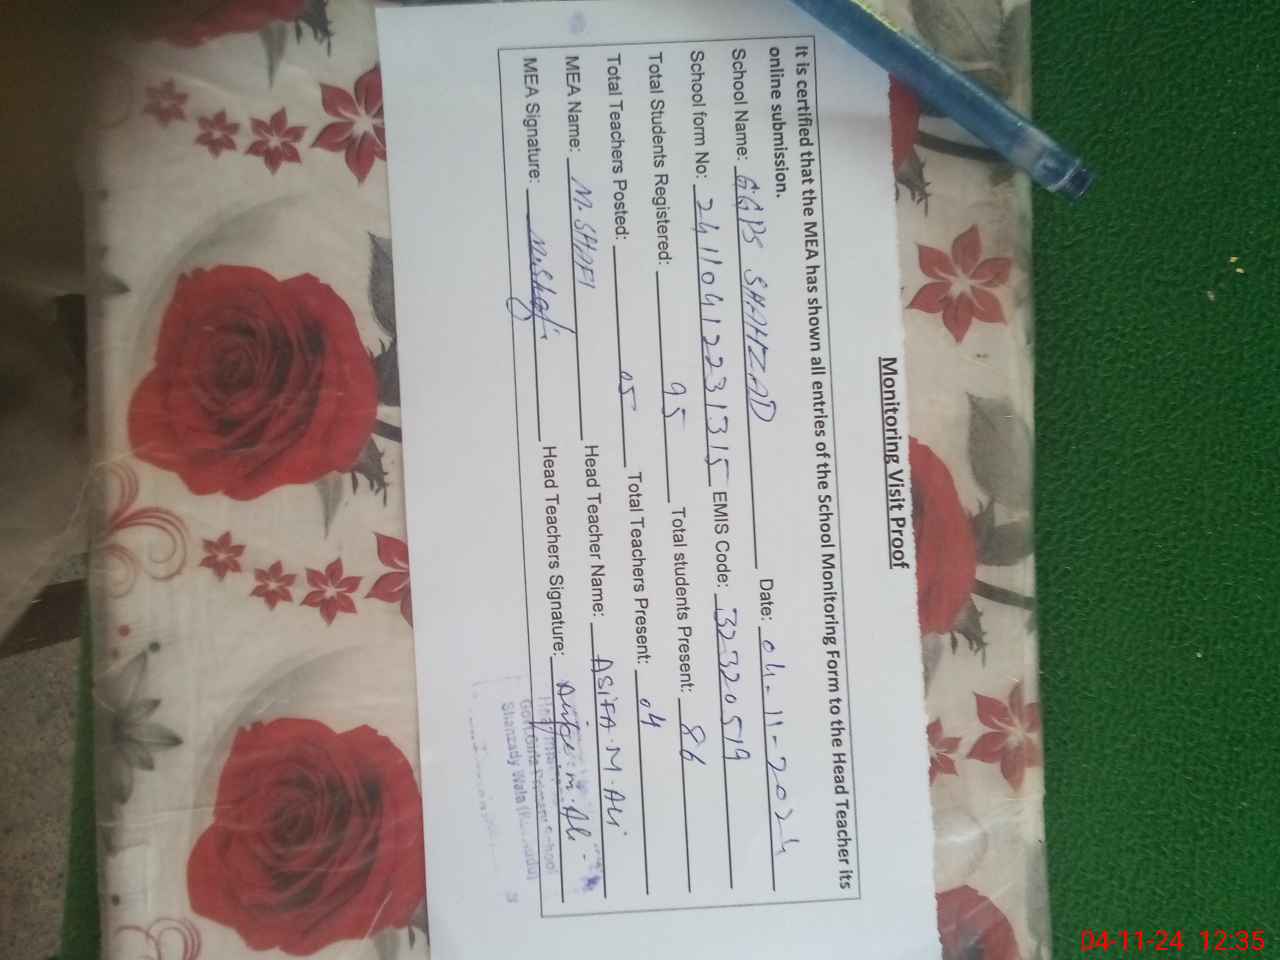 Monitoring Visit Proof
It is certified that the MEA has shown all entries of the School Monitoring Form to the Head Teacher its
online submission.
School Name: GGPS SHAHZAD Date: 04-11-2024
School form No: 24110412231315 EMIS Code: 32320519
Total Students Registered: 95 Total students Present: 86
Total Teachers Posted: 05 Total Teachers Present: 04
MEA Name: M. SHAFI Head Teacher Name: ASIFA. M. ALI
MEA Signature: M. Shafi Head Teachers Signature:
Shahzady Wala
04-11-24 12:35